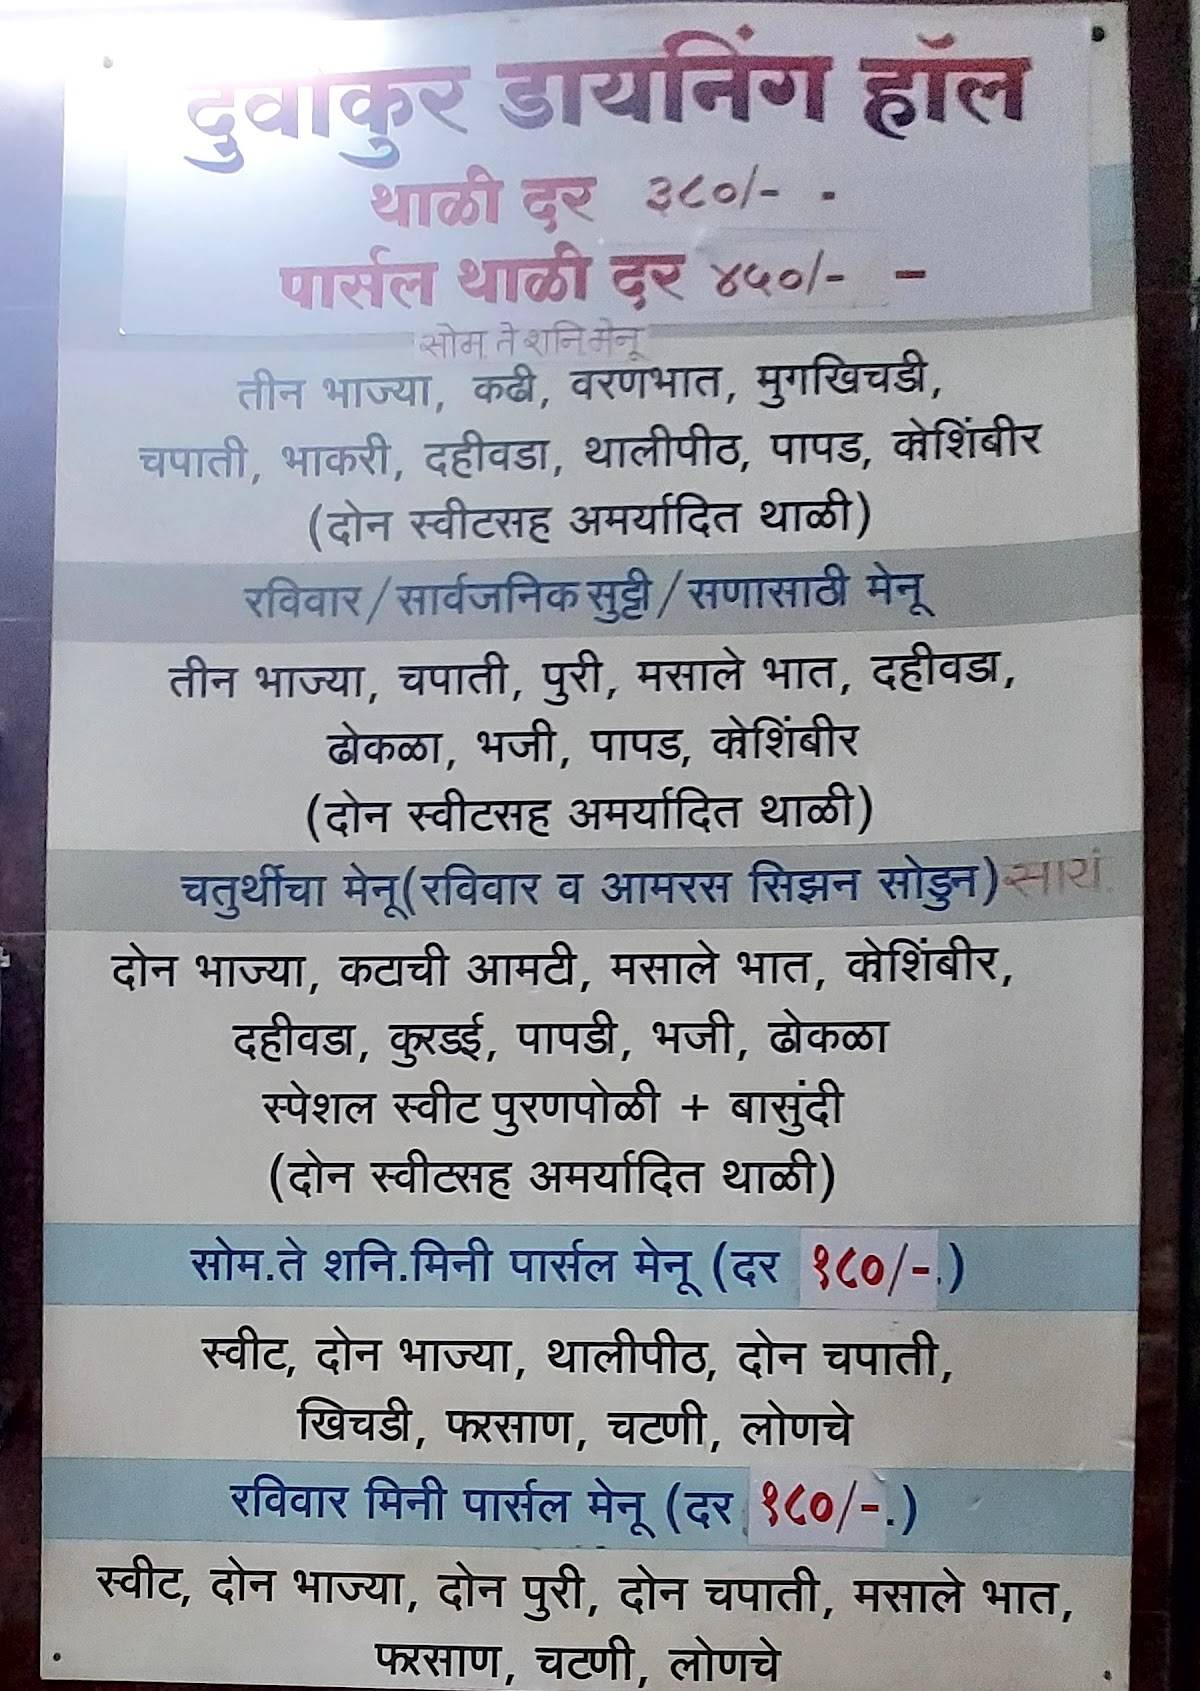 दुर्वांकुर डायनिंग हॉल
थाळी दर ३८०/- -
पार्सल थाळी दर ४५०/- -
सोम. ते शनि.मेनू
तीन भाज्या, कढी, वरणभात, मुगखिचडी,
चपाती, भाकरी, दहीवडा, थालीपीठ, पापड, कोशिंबीर
(दोन स्वीटसह अमर्यादित थाळी)
रविवार/सार्वजनिक सुट्टी/सणासाठी मेनू
तीन भाज्या, चपाती, पुरी, मसाले भात, दहीवडा,
ढोकळा, भजी, पापड, कोशिंबीर
(दोन स्वीटसह अमर्यादित थाळी)
चतुर्थीचा मेनू(रविवार व आमरस सिझन सोडुन) सायं.
दोन भाज्या, कटाची आमटी, मसाले भात, कोशिंबीर,
दहीवडा, कुरडई, पापडी, भजी, ढोकळा
स्पेशल स्वीट पुरणपोळी + बासुंदी
(दोन स्वीटसह अमर्यादित थाळी)
सोम.ते शनि.मिनी पार्सल मेनू (दर १८०/-.)
स्वीट, दोन भाज्या, थालीपीठ, दोन चपाती,
खिचडी, फरसाण, चटणी, लोणचे
रविवार मिनी पार्सल मेनू (दर १८०/-.)
स्वीट, दोन भाज्या, दोन पुरी, दोन चपाती, मसाले भात,
फरसाण, चटणी, लोणचे